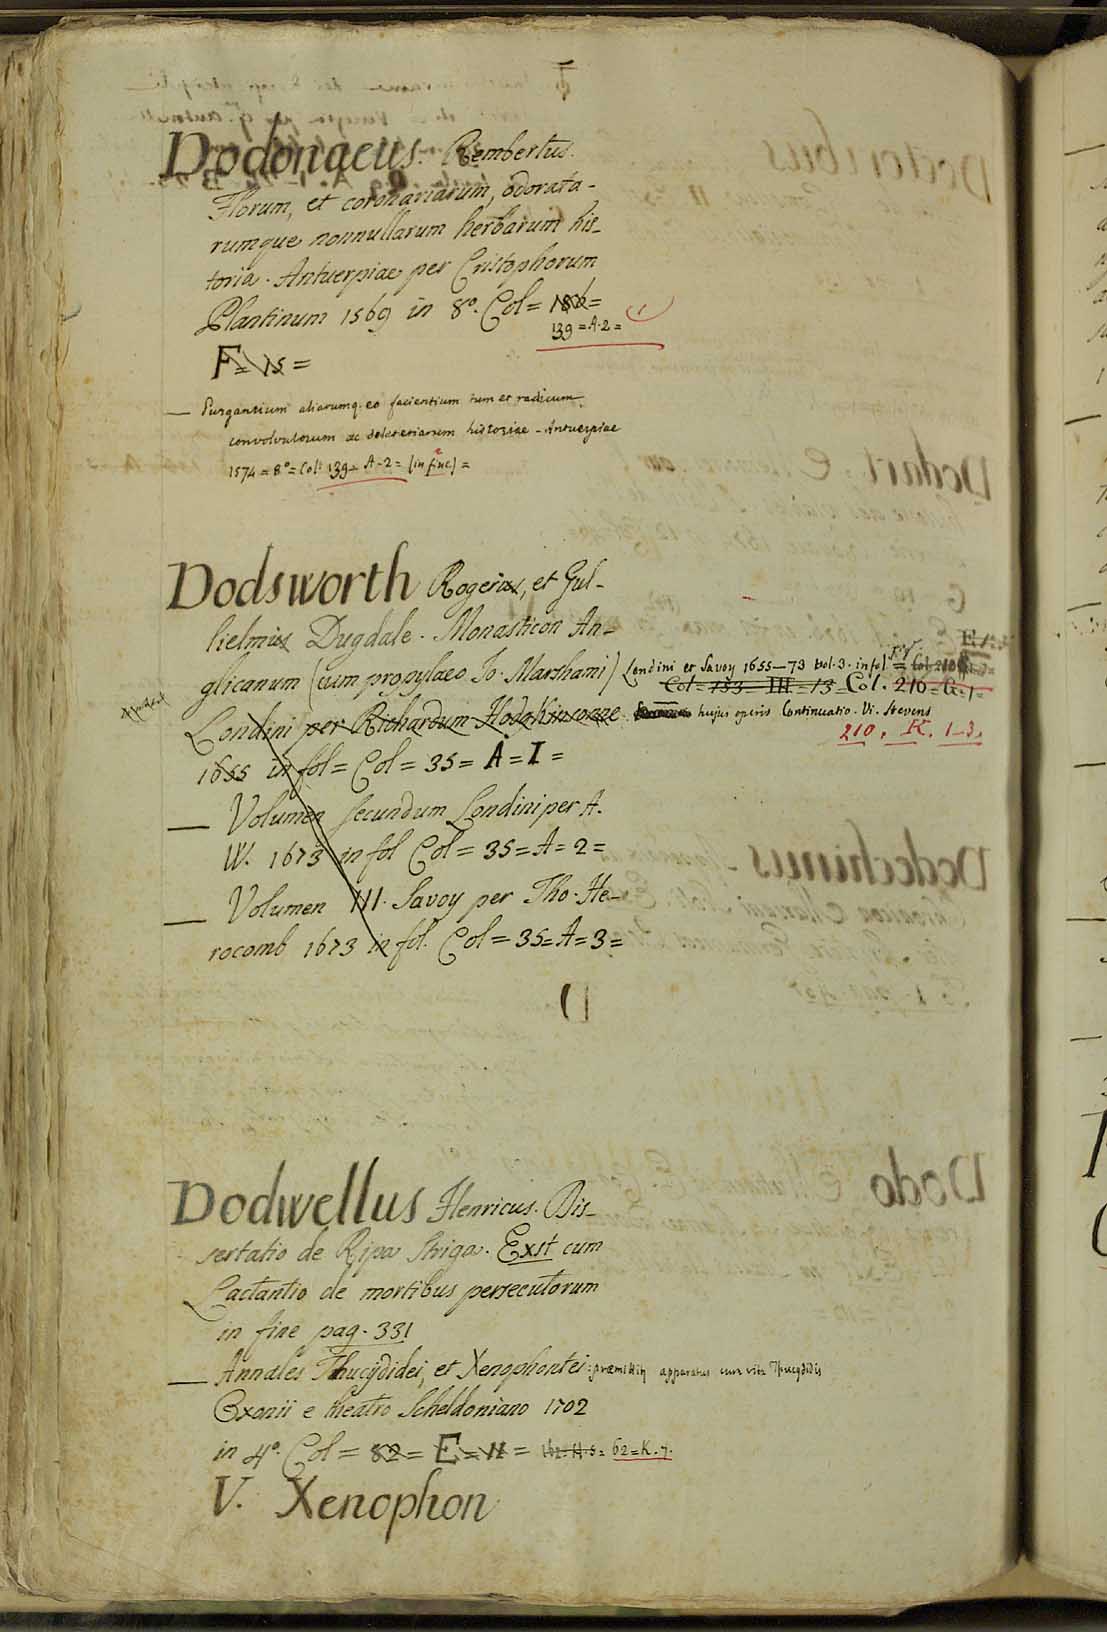 Dodonaeus. Rembertus.
Florum, et coronariarum, odorata-
rumque nonnullarum herbarum his-
toria. Antuerpiae per Cristophorum
Plantinum 1569 in 8º. Col = 186 =
139 = A. 2 =
F = 15 =
— Purgantium aliarumq. eo facientium tum et radicum
convolvulorum ac deleteriarum historiae - Antuerpiae
1574 = 8º = Col: 139 = A - 2 = (in fine) =
Dodsworth Rogerius, et Gul-
lielmus Dugdale. Monasticon An-
glicanum (cum propylaeo Jo. Marshami) Londini et Savoy 1655-73 vol. 3. in fol. = Col. 210
Col = 133 = III = 13 = Col. 210 = G. 1 =
Londini per Richardum Hodgkinsonne hujus operis Continuatio. Vi. Stevens
210. K. 1-3.
1655 in fol = Col = 35 = A = I =
— Volumen secundum Londini per A.
W. 1673 in fol Col = 35 = A = 2 =
— Volumen III. Savoy per Tho. He-
rocomb 1673 in fol. Col = 35 = A = 3 =
Dodwellus Henricus. Dis-
sertatio de Ripa Striga. Exst cum
Lactantio de mortibus persecutorum
in fine pag. 331
— Annales Thucydidei, et Xenophontei: praemittit apparatus cum vita Thucydidis
Oxonii e theatro Scheldoniano 1702
in 4º. Col = 82 = E = 11 = 162. H. 5 = 62 = K. 7.
V. Xenophon